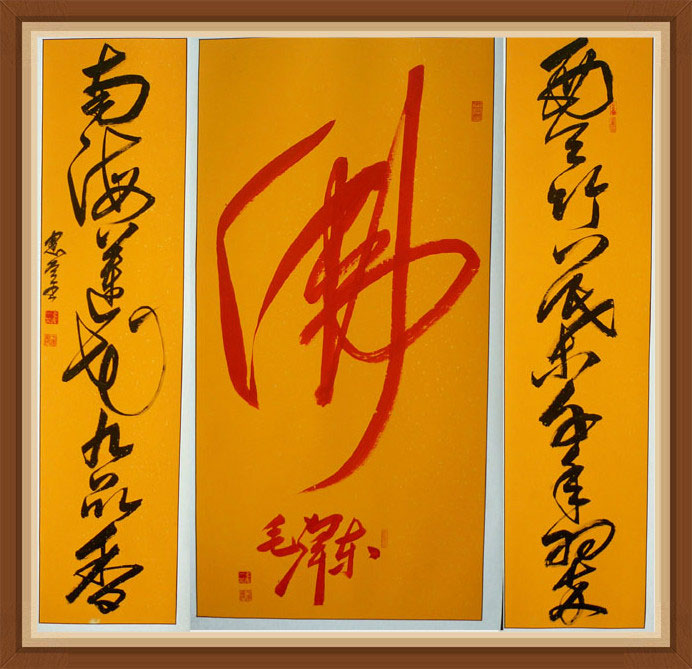 西天竹葉千年翠
佛
毛泽东
南海蓮花九品香